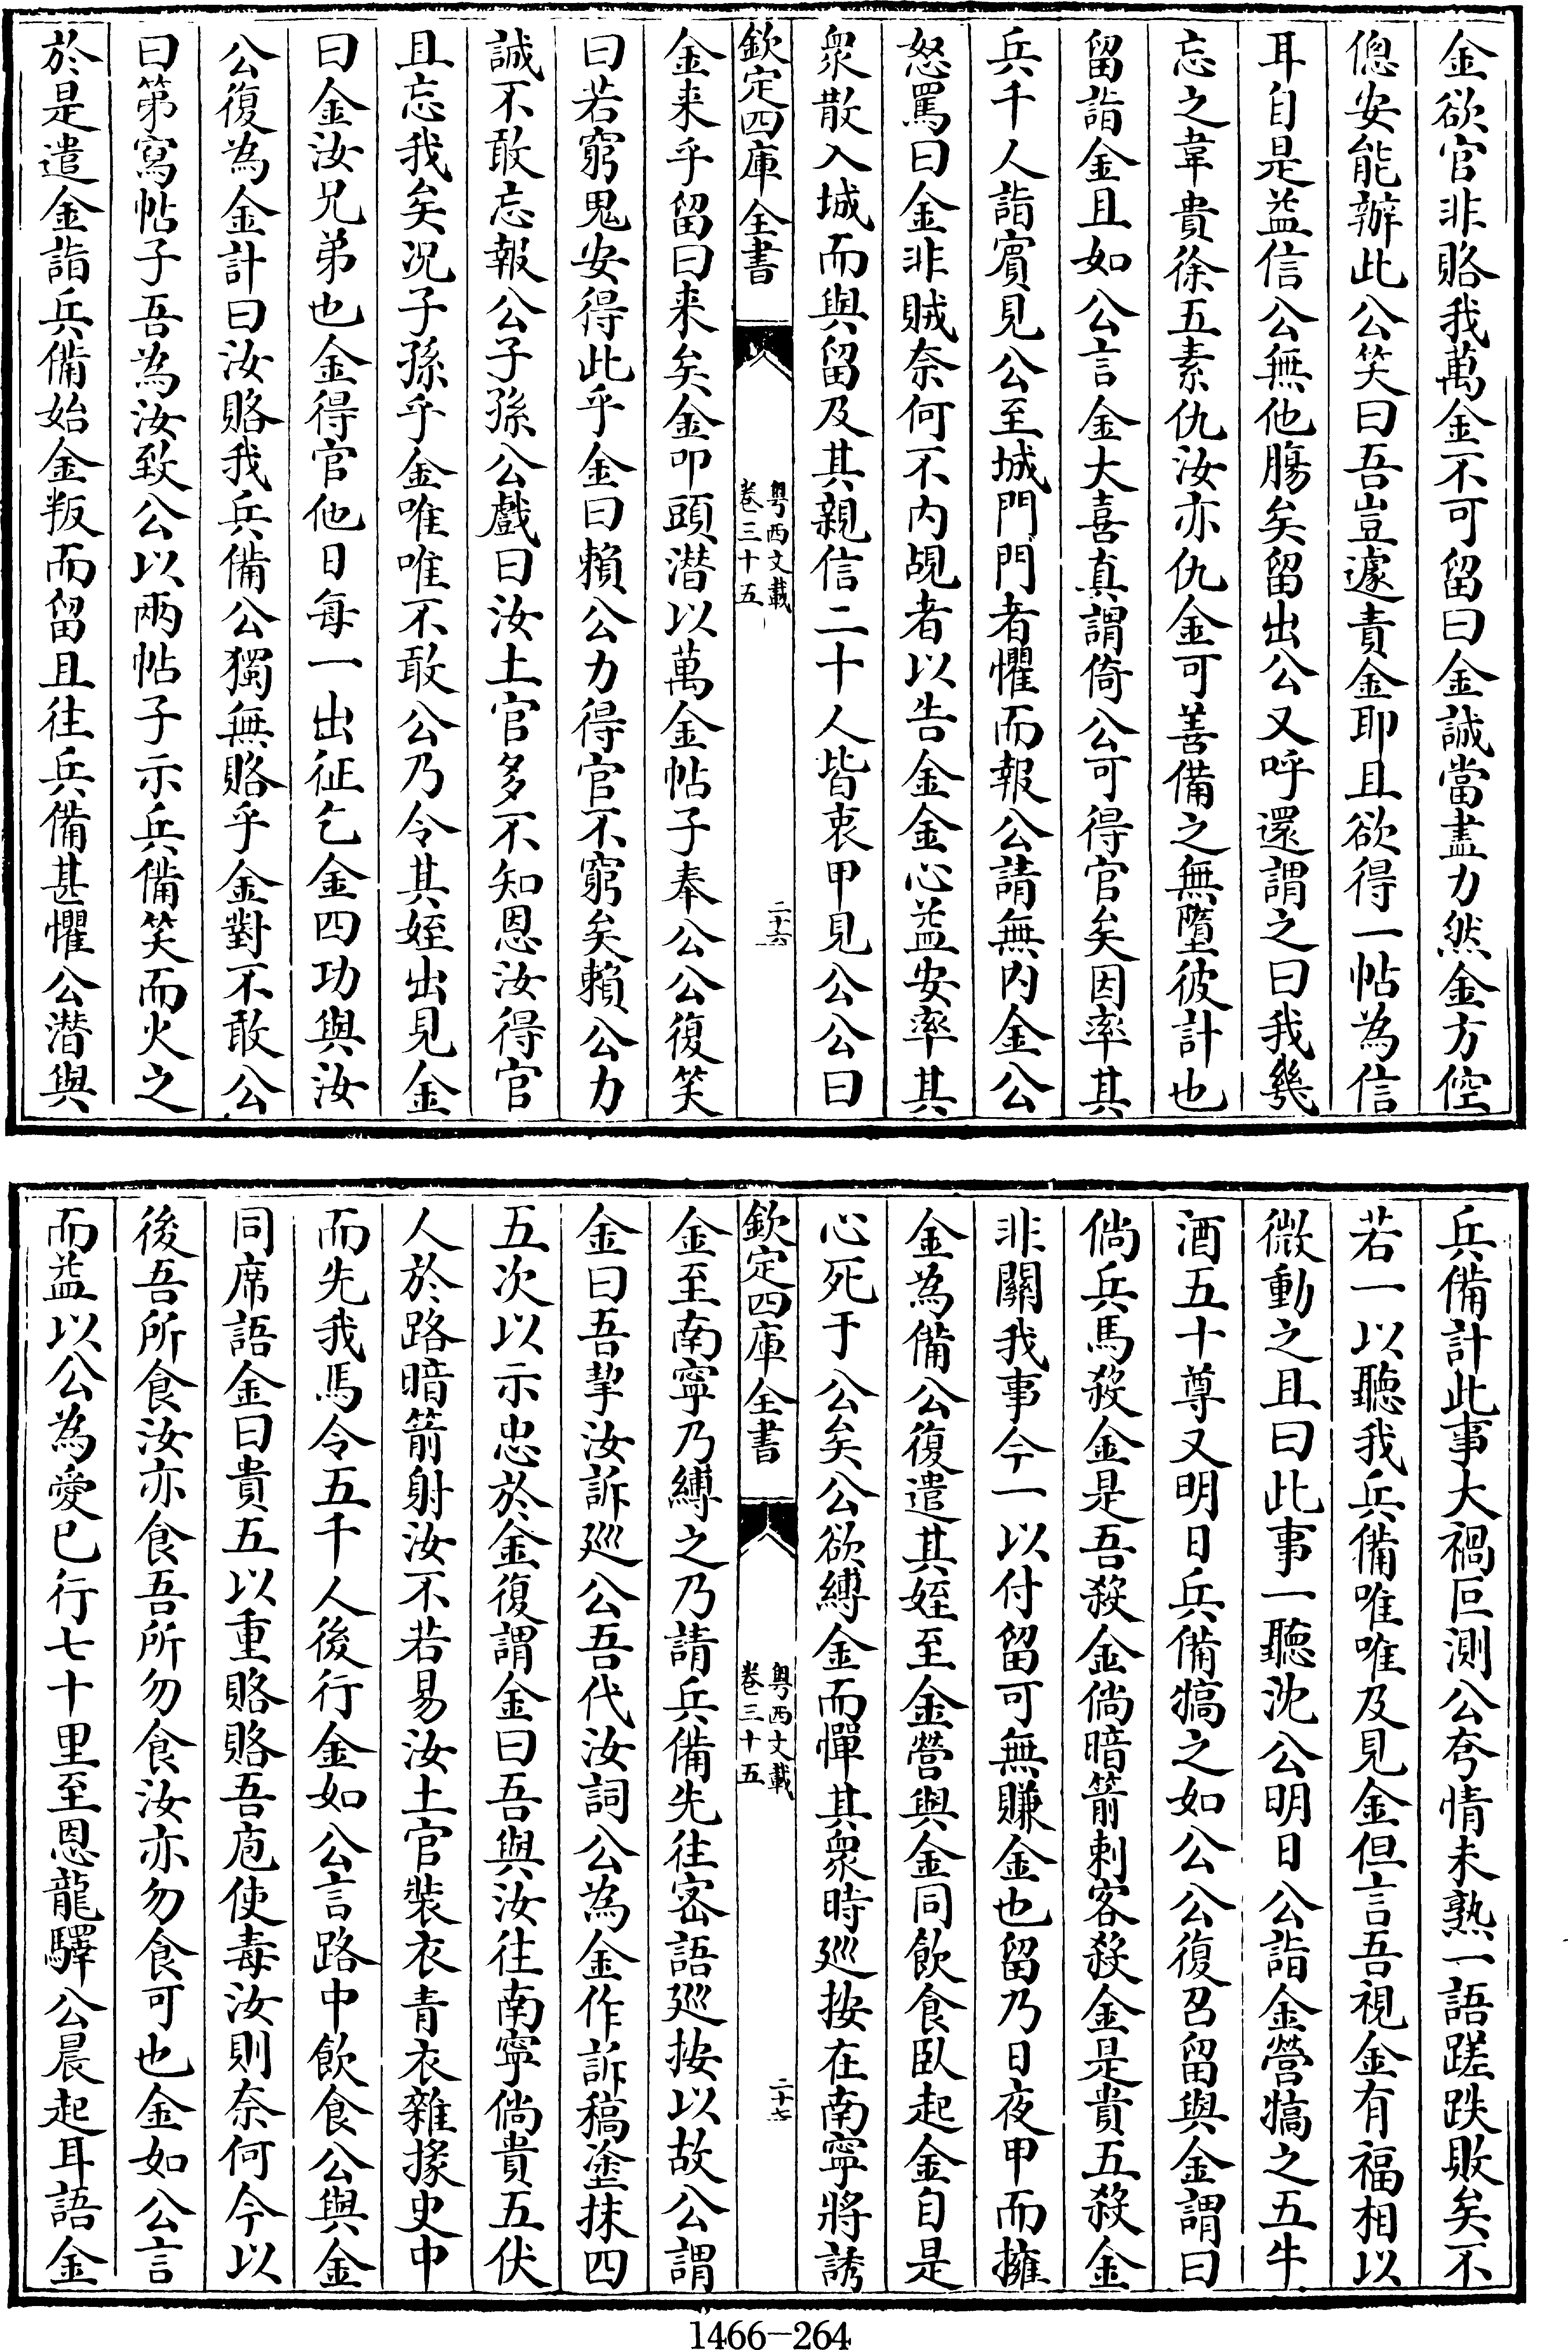 金欲官非賂我萬金不可留曰金誠當盡力然金方倥
傯安能辦此公笑曰吾豈遽責金耶且欲得一帖為信
耳自是益信公無他腸矣留出公又呼還謂之曰我幾
忘之韋貴徐五素仇汝亦仇金可善備之無墮彼計也
留詣金且如公言金大喜真謂倚公可得官矣因率其
兵千人詣賓見公至城門門者懼而報公請無內金公
怒罵曰金非賊奈何不內覘者以告金金心益安率其
衆散入城而與留及其親信二十人皆衷甲見公公曰
欽定四庫全書
粵西文載
卷三十五
二十六
金来乎留曰来矣金叩頭潛以萬金帖子奉公公復笑
曰若窮鬼安得此乎金曰賴公力得官不窮矣賴公力
誠不敢忘報公子孫公戲曰汝土官多不知恩汝得官
且忘我矣况子孫乎金唯唯不敢公乃令其姪出見金
曰金汝兄弟也金得官他日每一出征乞金四功與汝
公復為金計曰汝賂我兵備公獨無賂乎金對不敢公
曰第寫帖子吾為汝致公以兩帖子示兵備笑而火之
於是遣金詣兵備始金叛而留且往兵備甚懼公潛與
兵備計此事大禍叵測公夸情未熟一語蹉跌敗矣不
若一以聽我兵備唯唯及見金但言吾視金有福相以
微動之且曰此事一聽沈公明日公詣金營犒之五牛
酒五十尊又明日兵備犒之如公公復召留與金謂曰
倘兵馬殺金是吾殺金倘暗箭刺客殺金是貴五殺金
非關我事今一以付留可無賺金也留乃日夜甲而擁
金為備公復遣其姪至金營與金同飲食臥起金自是
心死于公矣公欲縛金而憚其衆時廵按在南寧將誘
欽定四庫全書
粵西文載
卷三十五
二十七
金至南寧乃縛之乃請兵備先往宻語廵按以故公謂
金曰吾挈汝訴廵公吾代汝詞公為金作訴稿塗抹四
五次以示忠於金復謂金曰吾與汝往南寧倘貴五伏
人於路暗箭射汝不若易汝土官裝衣青衣雜掾史中
而先我馬令五千人後行金如公言路中飲食公與金
同席語金曰貴五以重賂賂吾庖使毒汝則奈何今以
後吾所食汝亦食吾所勿食汝亦勿食可也金如公言
而益以公為愛已行七十里至恩龍驛公晨起耳語金
1466-264